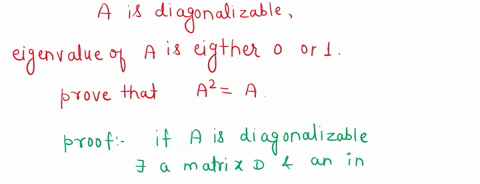 A is diagonalizable,
eigenvalue of A is eigther 0 or 1.
prove that A² = A.
proof:- if A is diagonalizable
∃ a matrix D & an in